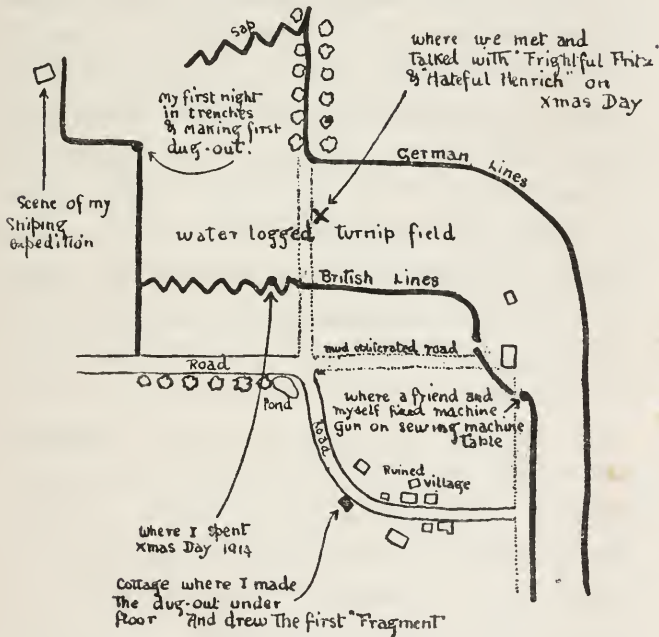 Sap
where we met and
Talked with "Frightful Fritz"
& "Hateful Henrich" on
Xmas Day
My first night
in trenches
& making first
dug-out.
German Lines
Scene of my
Sniping
expedition
water logged turnip field
British Lines
mud obliterated road
Road
Pond
where a friend and
myself fixed machine
Gun on sewing machine
Table
Road
Ruined
village
where I spent
Xmas Day 1914
Cottage where I made
The dug-out under
floor And drew The first "Fragment"